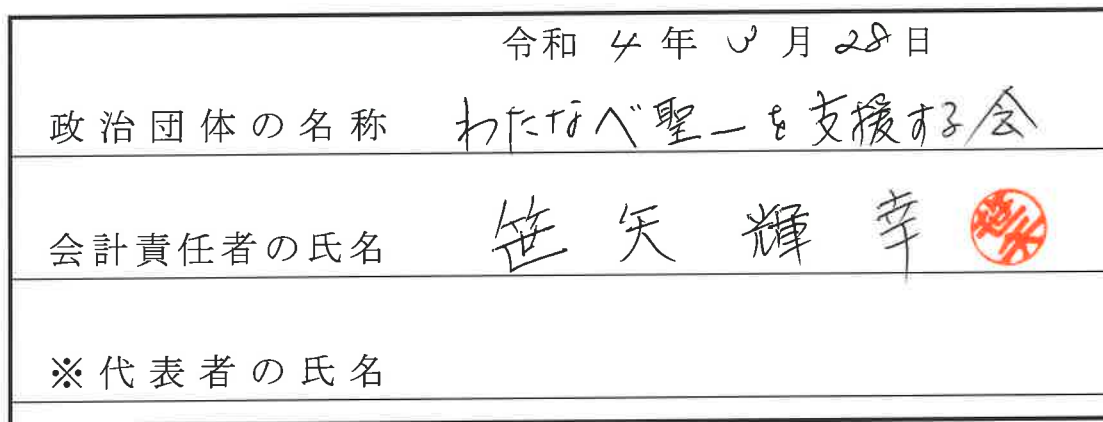 令和 4 年 3 月 28 日
政治団体の名称 わたなべ聖一を支援する会
会計責任者の氏名 笹矢輝幸
※代表者の氏名